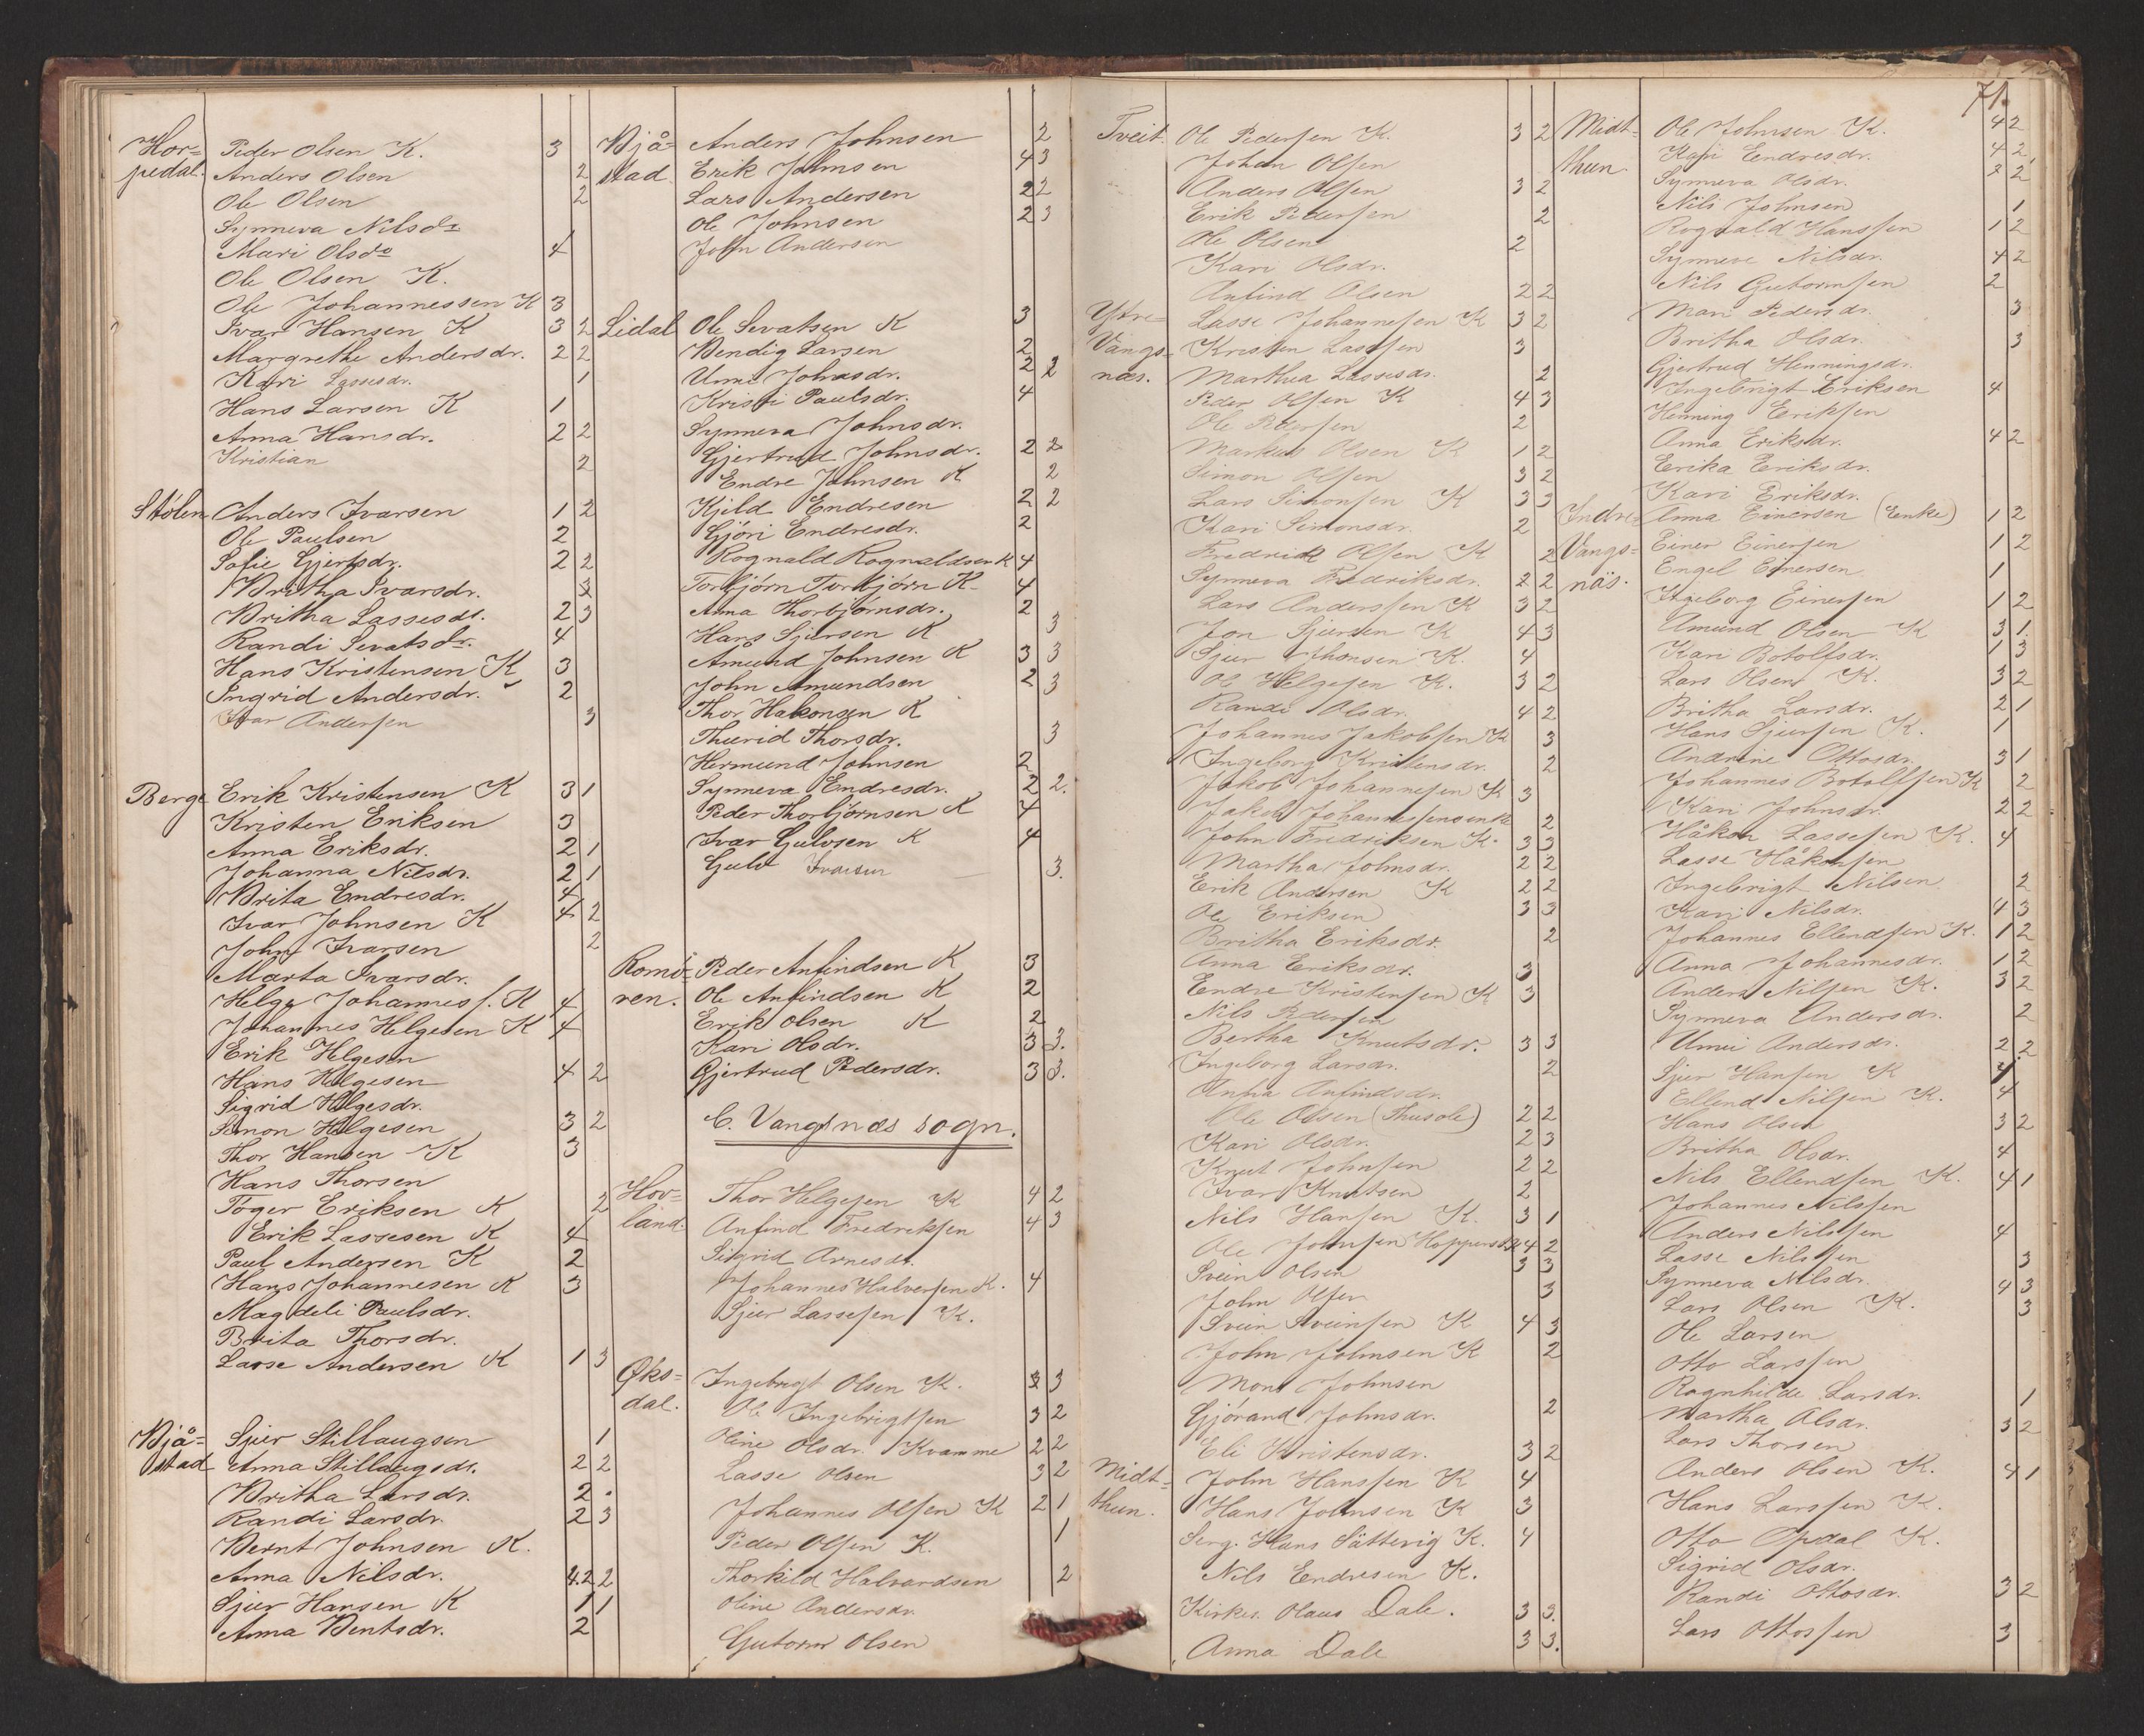 Hor= Peder Olsen K. 3
pedal. Anders Olsen 2
Ole Olsen 2
Synneva Nilsdr
Mari Olsdr 4
Ole Olsen K.
Ole Johannessen K 3
Ivar Hansen K 3 2
Margrethe Andersdr. 2 2
Kari Lassesdr. 1
Hans Larsen K 1
Anna Hansdr. 2 2
Kristian 2
Stølen Anders Ivarsen 1 2
Ole Paulsen 2
Sofie Gjertsdr. 2 2
Britha Ivarsdr. 3
Britha Lassesdr. 2 3
Randi Sevatsdr. 4
Hans Kristensen K 3
Ingrid Andersdr. 2
Ivar Andersen 3
Berge Erik Kristensen K 3 1
Kristen Eriksen 3
Anna Eriksdr. 2 1
Johanna Nilsdr. 2 1
Brita Endresdr. 4
Ivar Johnsen K 4 2
John Ivarsen 2
Marta Ivarsdr.
Helge Johanness. K 4
Johannes Helgesen K 4
Erik Helgesen
Hans Helgesen 4 2
Sigrid Helgesdr.
Simon Helgesen 3 2
Thor Hansen K 3
Hans Thorsen
Töger Eriksen K 2
Erik Lassesen K 4
Paul Andersen K 2
Hans Johannesen K 3
Magdeli Paulsdr.
Brita Thorsdr.
Lasse Andersen K 1 3
Bjå= Sjur Stillaugsen 1
stad Anna Stillaugsdr. 2 2
Britha Larsdr. 2.
Randi Larsdr. 2 3
Bernt Johnsen K.
Anna Nilsdr. 4.2 2
Sjur Hansen K 1 1
Anna Bentsdr. 2
Bjå= Anders Johnsen 2
stad Erik Johnsen 4 3
Lars Andersen 2 2
Ole Johnsen 2 3
John Andersen
Lidal Ole Sevatsen K 3
Bendig Larsen 2
Unni Johnsdr. 2 2
Kristi Paulsdr. 4
Synneva Johnsdr.
Gjertrud Johnsdr. 2 2
Endre Johnsen K 2
Kjeld Endresen 2 2
Gjöri Endresdr. 2
Rognald Rognaldsen K 4
Torbjörn Torbjörn K. 4
Anna Thorbjörnsdr. 2
Hans Sjursen K 3
Amund Johnsen K 3 3
John Amundsen 2 3
Thor Hakonsen K
Thurid Thorsdr. 3
Hermund Johnsen 2
Synneva Endresdr. 2 2.
Peder Thorbjörnsen K 4
Ivar Gulvsen K 4
Gulv Ivarsen 3.
Romö= Peder Anfindsen K 3
ren. Ole Anfindsen K 2
Erik Olsen K 2
Kari Olsdr. 3 3.
Gjertrud Pedersdr. 3 3.
C. Vangsnæs sogn.
Hov= Thor Helgesen K 4 2
land. Anfind Fredriksen 4 3
Sigrid Arnesdr.
Johannes Halversen K. 4
Sjur Lassesen K.
Øks= Ingebrigt Olsen K. 3 3
dal. Ole Ingebrigtsen 3 2
Oline Olsdr. Kvamme 2 2
Lasse Olsen 3 2
Johannes Olsen K 2 1
Peder Olsen K. 1
Thorkild Halvardsen 2
Oline Andersdr.
Gutorm Olsen
Tveit Ole Pedersen K. 3 2
Johan Olsen
Anders Olsen 3 2
Erik Pedersen 2
Ole Olsen 2
Kari Olsdr.
Anfind Olsen 2 2
Ytre= Lasse Johannesen K 3 2
Vangs= Kristen Lassesen 3
næs. Marthea Lassesdr. 2
Peder Olsen K 4 3
Ole Pedersen 2
Markus Olsen K 1 2
Simon Olsen 3 2
Lars Simonsen K 3 3
Kari Simonsdr. 2
Fredrik Olsen K 2
Synneva Fredriksdr. 2 2
Lars Anderssen K 3 2
Jon Sjursen K 4 3
Sjur Johnsen K. 4
Ole Helgesen K. 3 2
Randi Olsdr. 4 2
Johannes Jakobsen K 3
Ingeborg Kristensdr. 2
Jakob Johannesen K 3
Jakob Johannesens enke 2
John Fredriksen K. 3 3
Martha Johnsdr. 2 2
Erik Andersen K 2 2
Ole Eriksen 3 3
Britha Eriksdr. 2
Anna Eriksdr. 3
Endre Kristensen K 3
Nils Pedersen
Bertha Knutsdr. 3 3
Ingeborg Larsdr. 2
Anna Anfindsdr.
Ole Olsen (Thusole) 2 2
Kari Olsdr. 2 3
Knut Johnsen 2 2
Ivar Knutsen 2
Nils Hansen K. 3 1
Ole Johnsen Hopperstad 4 2
Svein Olsen 3 3
John Olsen 3
Svein Sveinsen K 4 3
John Johnsen K 2
Mons Johnsen
Gjörand Johnsdr. 2
Eli Kristensdr. 3 2
Midt= John Hanssen K 4
thun. Hans Johnsen K 3
Serg. Hans Sättevig K. 4
Nils Endresen K.
Kirkes. Olaus Dale. 3 3.
Anna Dale 3 3.
71.
Midt= Ole Johnsen K. 4 2
thun. Kari Endresdr. 4 2
Synneva Olsdr. 2 2
Nils Johnsen 1
Rognald Hanssen 1 2
Synneve Nilsdr. 4 2
Nils Gutormsen 2
Mari Pedersdr. 3
Britha Olsdr. 3
Gjertrud Henningsdr.
Ingebrigt Eriksen 4
Henning Eriksen
Anna Eriksdr. 4 2
Erika Eriksdr.
Kari Eriksdr.
Indre= Anna Einersen (Enke) 1 2
Vangs= Einer Einersen 1 2
näs. Engel Einersen 1
Ingeborg Einersen 1 2
Amund Olsen K 3 1.
Kari Botolfsdr. 1 3
Lars Olsen K. 3 2
Britha Larsdr. 2 1
Hans Sjursen K. 1
Andrine Ottosdr. 3 1
Johannes Botolfsen K 2
Kari Johnsdr. 2 2
Håkon Lassesen K. 4
Lasse Håkonsen
Ingebrigt Nilsen 2
Kari Nilsdr. 4 3
Johannes Ellendsen K. 1 2
Anna Johannesdr. 1 2
Anders Nilsen K. 3 2
Synneva Andersdr. 2
Unni Andersdr. 2 2
Sjur Hansen K 4
Ellend Nilsen K. 4
Hans Olsen 3 2
Britha Olsdr. 4
Nils Ellendsen K. 4 1
Johannes Nilssen
Anders Nilssen 4
Lasse Nilssen 3
Synneva Nilsdr. 4 3
Lars Olsen K. 3
Ole Larsen
Otto Larssen
Ragnhilde Larsdr. 1
Martha Olsdr. 3 2
Lars Thorsen
Anders Olsen K. 4 1
Hans Larssen K.
Otto Opdal K.
Sigrid Olsdr.
Randi Ottosdr. 3 2
Lars Ottossen 3